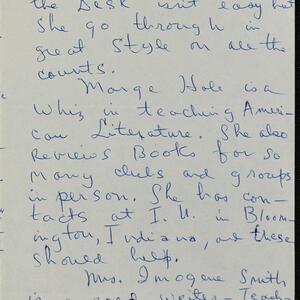 the Desk isn't easy but
She go through in
great Style on all the
counts.
Marge Hole is a
Whiz in teaching Ameri-
can Literature. She also
Reviews Books for so
many clubs and groups
in person. She has con-
tacts at I. U. in Bloom-
ington, Indiana, and these
should help.
Mrs. Imogene Smith
is good writer - Teach